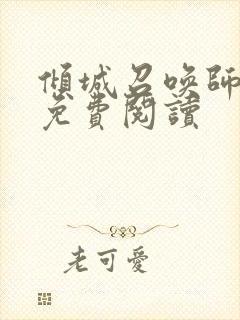 傾城召喚師
免費閱讀
老可愛